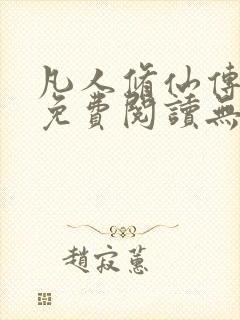 凡人脩仙傳
免費閱讀無
趙寂蕙